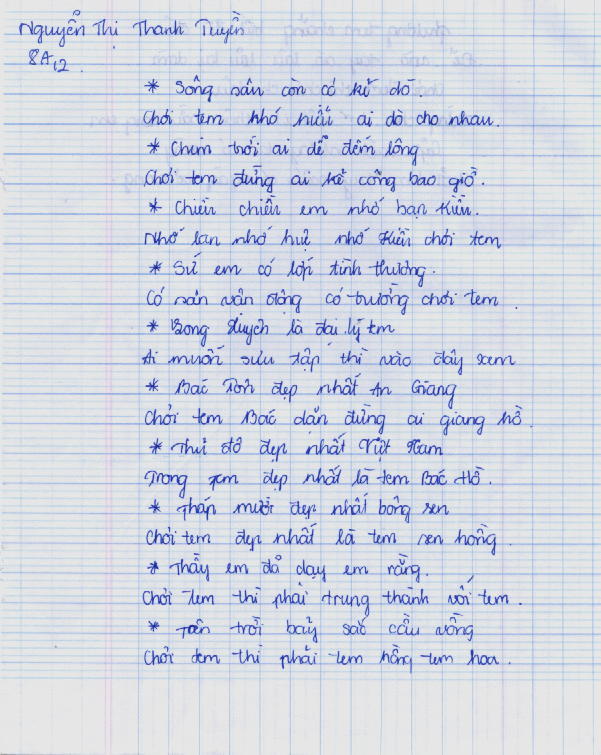 Nguyễn Thị Thanh Tuyền
8A12.
* Sông sân còn có kẻ dò.
Chơi tem khó hiểu ai dò cho nhau.
* Chim trời ai dễ đếm lông
Chơi tem đừng ai kể công bao giờ.
* Chiều chiều em nhớ bạn Kiều.
Nhớ lan nhớ huệ nhớ Kiều chơi tem
* Sứ em có lớp tình thương.
Có sân vân động có trường chơi tem.
* Bong Huych là đại lý tem
Ai muốn sưu tập thì vào đây xem
* Bác Tôn đẹp nhất An Giang
Chơi tem Bác dặn đừng ai giang hồ.
* Thủ đô đẹp nhất Việt Nam
Trong tem đẹp nhất là tem Bác Hồ.
* Tháp mười đẹp nhất bông sen
Chơi tem đẹp nhất là tem sen hồng.
* Thầy em đã dạy em rằng.
Chơi tem thì phải trung thành với tem.
* Trên trời bảy sắc cầu vồng
Chơi tem thì phải tem hồng tem hoa.